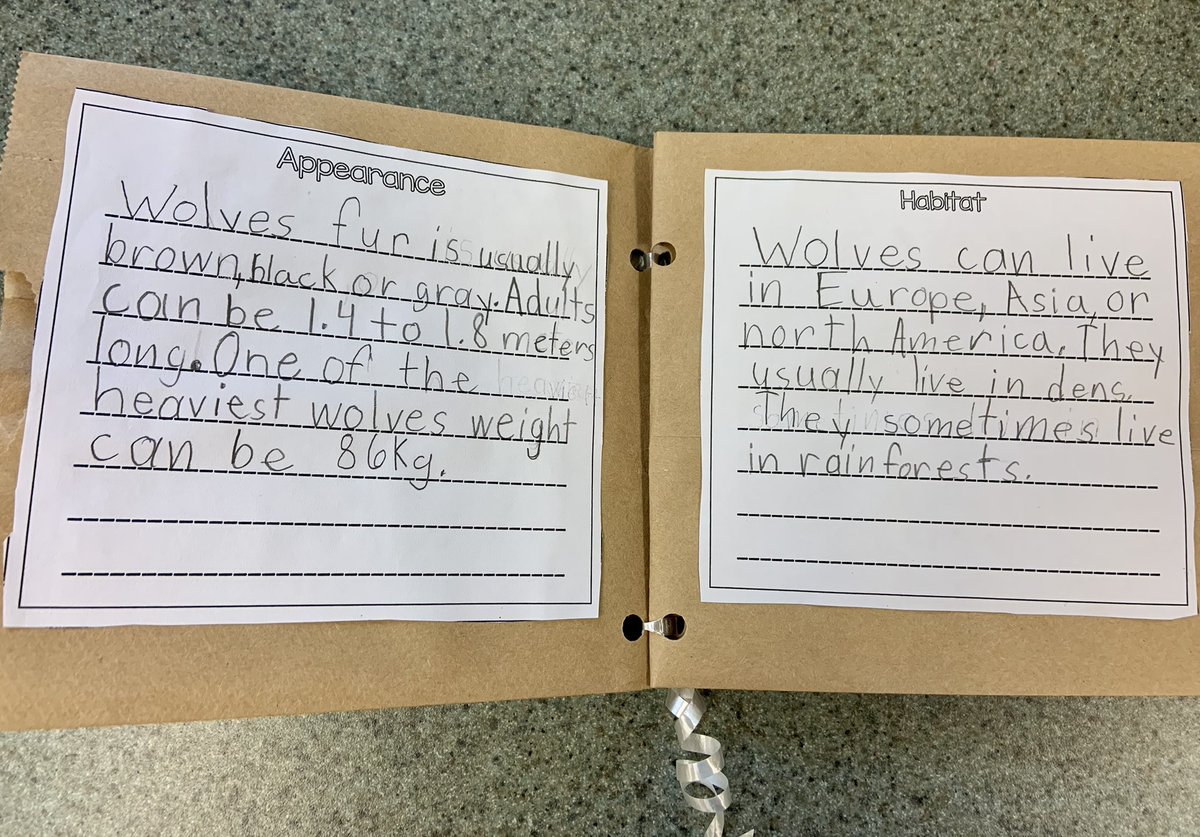 Appearance
Wolves fur is usually
brown, black or gray. Adults
can be 1.4 to 1.8 meters
long. One of the
heaviest wolves weight
can be 86Kg.
Habitat
Wolves can live
in Europe, Asia, or
north America. They
usually live in dens.
They sometimes live
in rainforests.